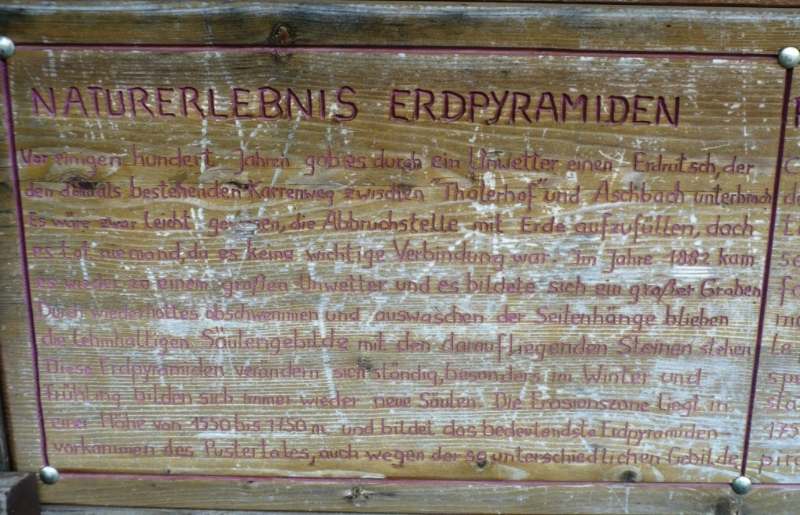 NATURERLEBNIS ERDPYRAMIDEN
Vor einigen hundert Jahren gab es durch ein Unwetter einen Erdrutsch, der
den damals bestehenden Karrenweg zwischen "Thalerhof" und Aschbach unterbrach
Es wäre zwar leicht gewesen, die Abbruchstelle mit Erde aufzufüllen, doch
es tat niemand, da es keine wichtige Verbindung war. Im Jahre 1882 kam
es wieder zu einem großen Unwetter und es bildete sich ein großer Graben
Durch wiederholtes abschwemmen und auswaschen der Seitenhänge blieben
die lehmhaltigen Säulengebilde mit den daraufliegenden Steinen stehen
Diese Erdpyramiden verändern sich ständig, besonders im Winter und
Frühling bilden sich immer wieder neue Säulen. Die Erosionszone liegt in
einer Höhe von 1550 bis 1750 m und bildet das bedeutendste Erdpyramiden
vorkommen des Pustertales, auch wegen der so unterschiedlichen Gebilde